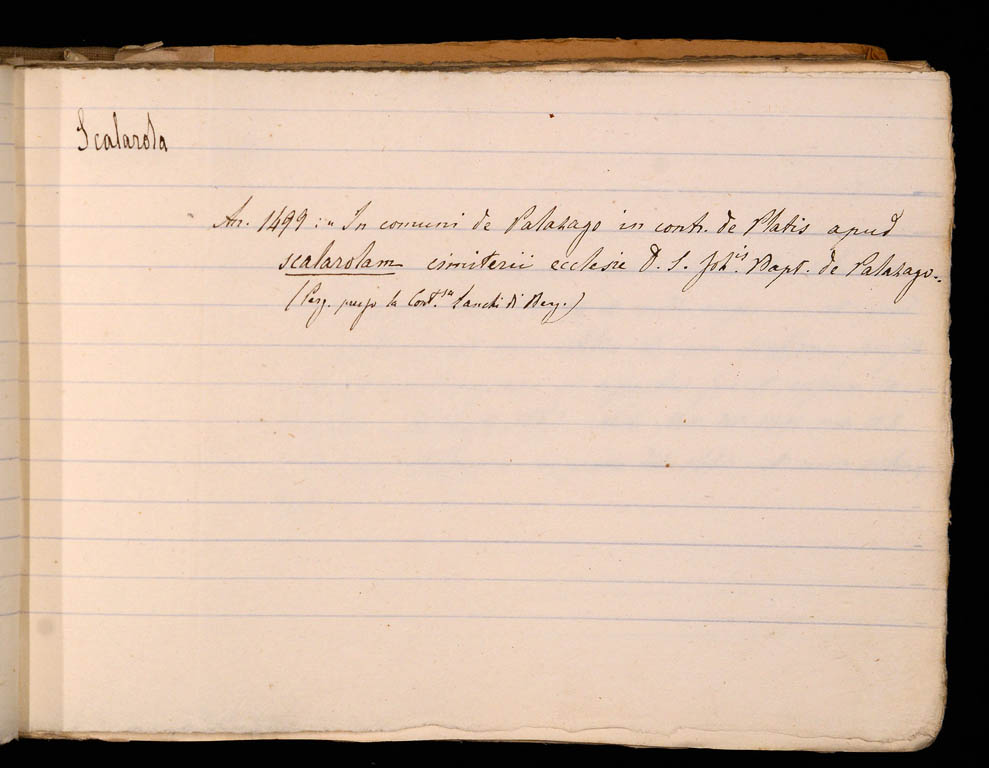 Scalarola
An. 1499: „ In comuni de Palazago in contr. de Platis apud
scalarolam cimiterii ecclesie D. S. Joh.is Bapt. de Palazago.
(Perg. presso la Cont.sa di Berg.)